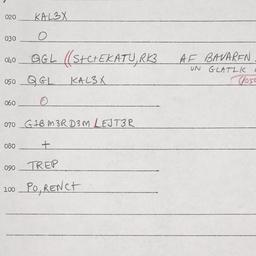 020 KAL3X
030 O
040 QGL ((S+C+EKATU,RK3 AF BAVARFN
UN GLATLIC
050 QGL KAL3X
060 O
070 G1BM3RD3M LEJT3R
080 +
090 TREP
100 PO,RENC+